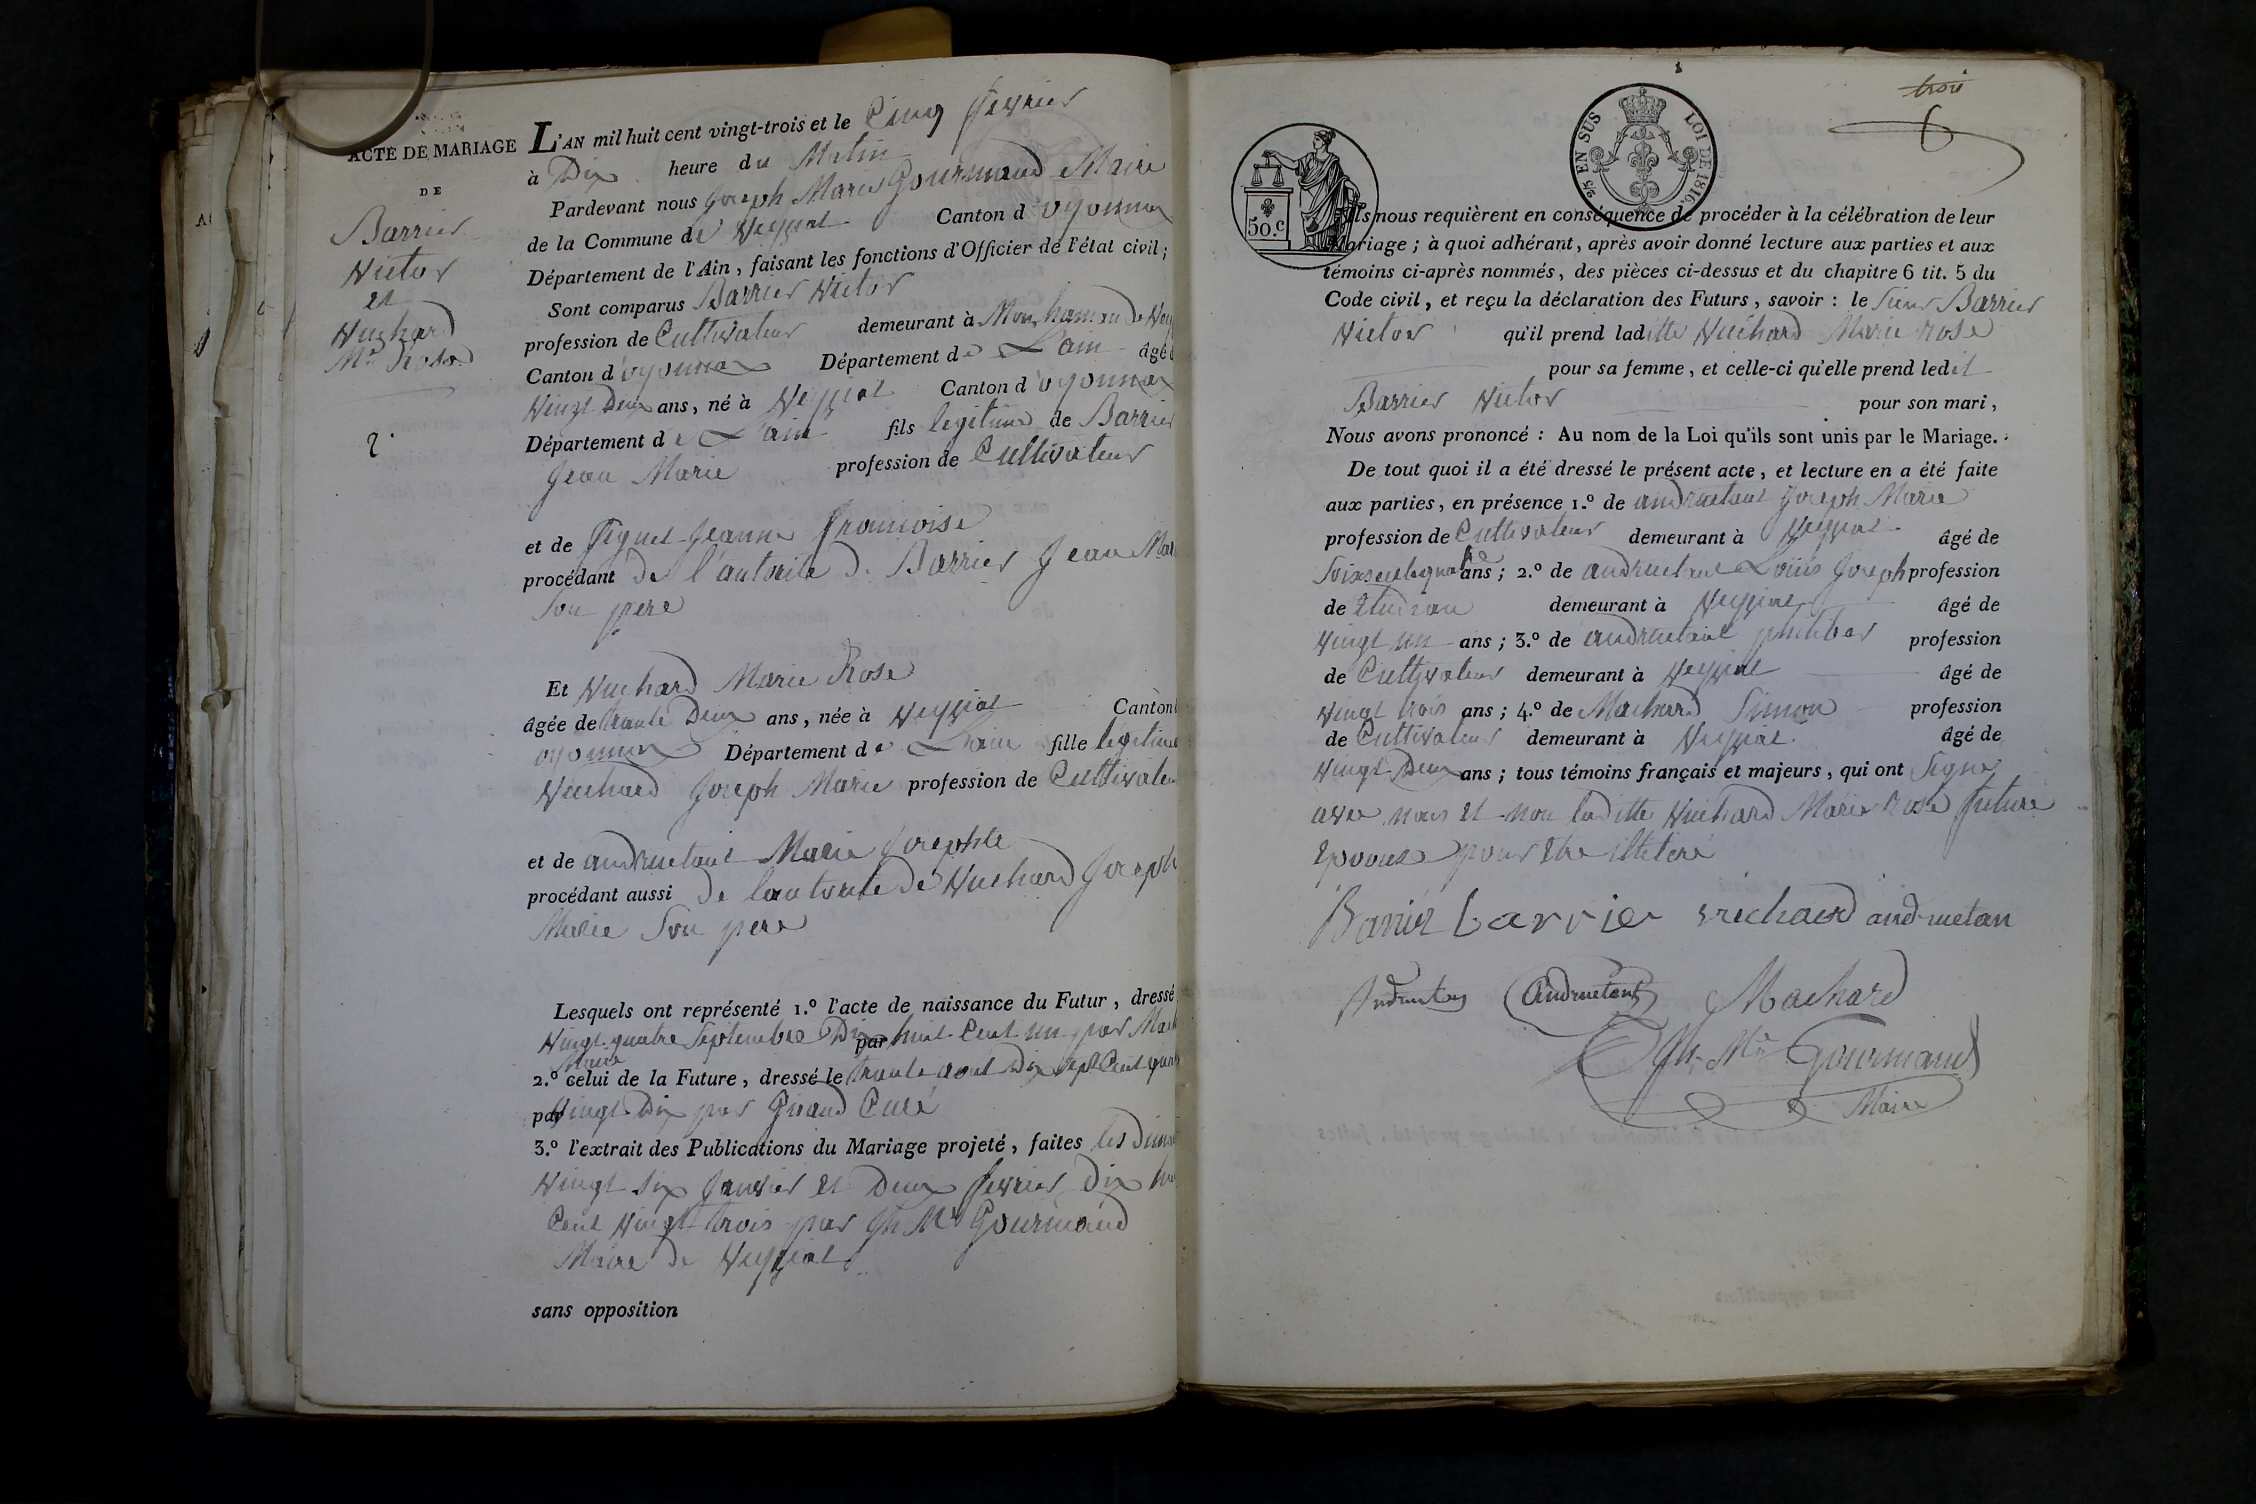 ACTE DE MARIAGE
DE
Barrier
Victor
et
Vuchard
Mie Rose
2.
L'AN mil huit cent vingt-trois et le Cinq fevrier
à Dix heure du Matin
Pardevant nous Joseph Marie Gourmand Maire
de la Commune de Veyziat Canton d'oyonnax
Département de l'Ain, faisant les fonctions d'Officier de l'état civil;
Sont comparus Barrier Victor
profession de Cultivateur demeurant à de
Canton d'oyonnax Département de L'ain âgé
Vingt Deux ans, né à Veyziat Canton d'oyonnax
Département de L'ain fils legitime de Barrier
Jean Marie profession de Cultivateur
et de Jeanne francoise
procédant de l'autorité de Barrier Jean
Son pere
Et Vuchard Marie Rose
âgée de trante Deux ans, née à Veyziat Canton
oyonnax Département de Lain fille legitime
Vuchard Joseph Marie profession de Cultivateur
et de andruetant Marie Josephte
procédant aussi de lautorité de Vuchard Joseph
Marie Son pere
Lesquels ont représenté 1.º l'acte de naissance du Futur, dressé
Vingt quatre Septembre Dix huit Cent un par
Maire
2.º celui de la Future, dressé le trante aout Dix Sept Cent
par Vingt Dix par Curé
3.º l'extrait des Publications du Mariage projeté, faites les
Vingt Six Janvier et Deux fevrier Dix
Cent Vingt trois par Jh Mie Gourmand
Maire de Veyziat
sans opposition
trois
6
25 EN SUS LOI DE 1816.
50.c
Ils nous requièrent en conséquence de procéder à la célébration de leur
Mariage; à quoi adhérant, après avoir donné lecture aux parties et aux
témoins ci-après nommés, des pièces ci-dessus et du chapitre 6 tit. 5 du
Code civil, et reçu la déclaration des Futurs, savoir : le Sieur Barrier
Victor qu'il prend laditte Vuchard Marie Rose
pour sa femme, et celle-ci qu'elle prend ledit
Barrier Victor pour son mari,
Nous avons prononcé : Au nom de la Loi qu'ils sont unis par le Mariage.
De tout quoi il a été dressé le présent acte, et lecture en a été faite
aux parties, en présence 1.º de andruetant Joseph Marie
profession de Cultivateur demeurant à Veyziat âgé de
ans; 2.º de andruetant Louis Joseph profession
de demeurant à Veyziat âgé de
Vingt un ans; 3.º de andruetant philiber profession
de Cultivateur demeurant à Veyziat âgé de
Vingt trois ans; 4.º de Machard Simon profession
de Cultivateur demeurant à Veyziat âgé de
Vingt Deux ans; tous témoins français et majeurs, qui ont Signé
avec nous et non laditte Vuchard Marie Rose future
epouse pour etre illiteré
Barrier barrier vuchard andruetan
Andruetan Andruetant Machard
Jh. Mie Gourmand
Maire